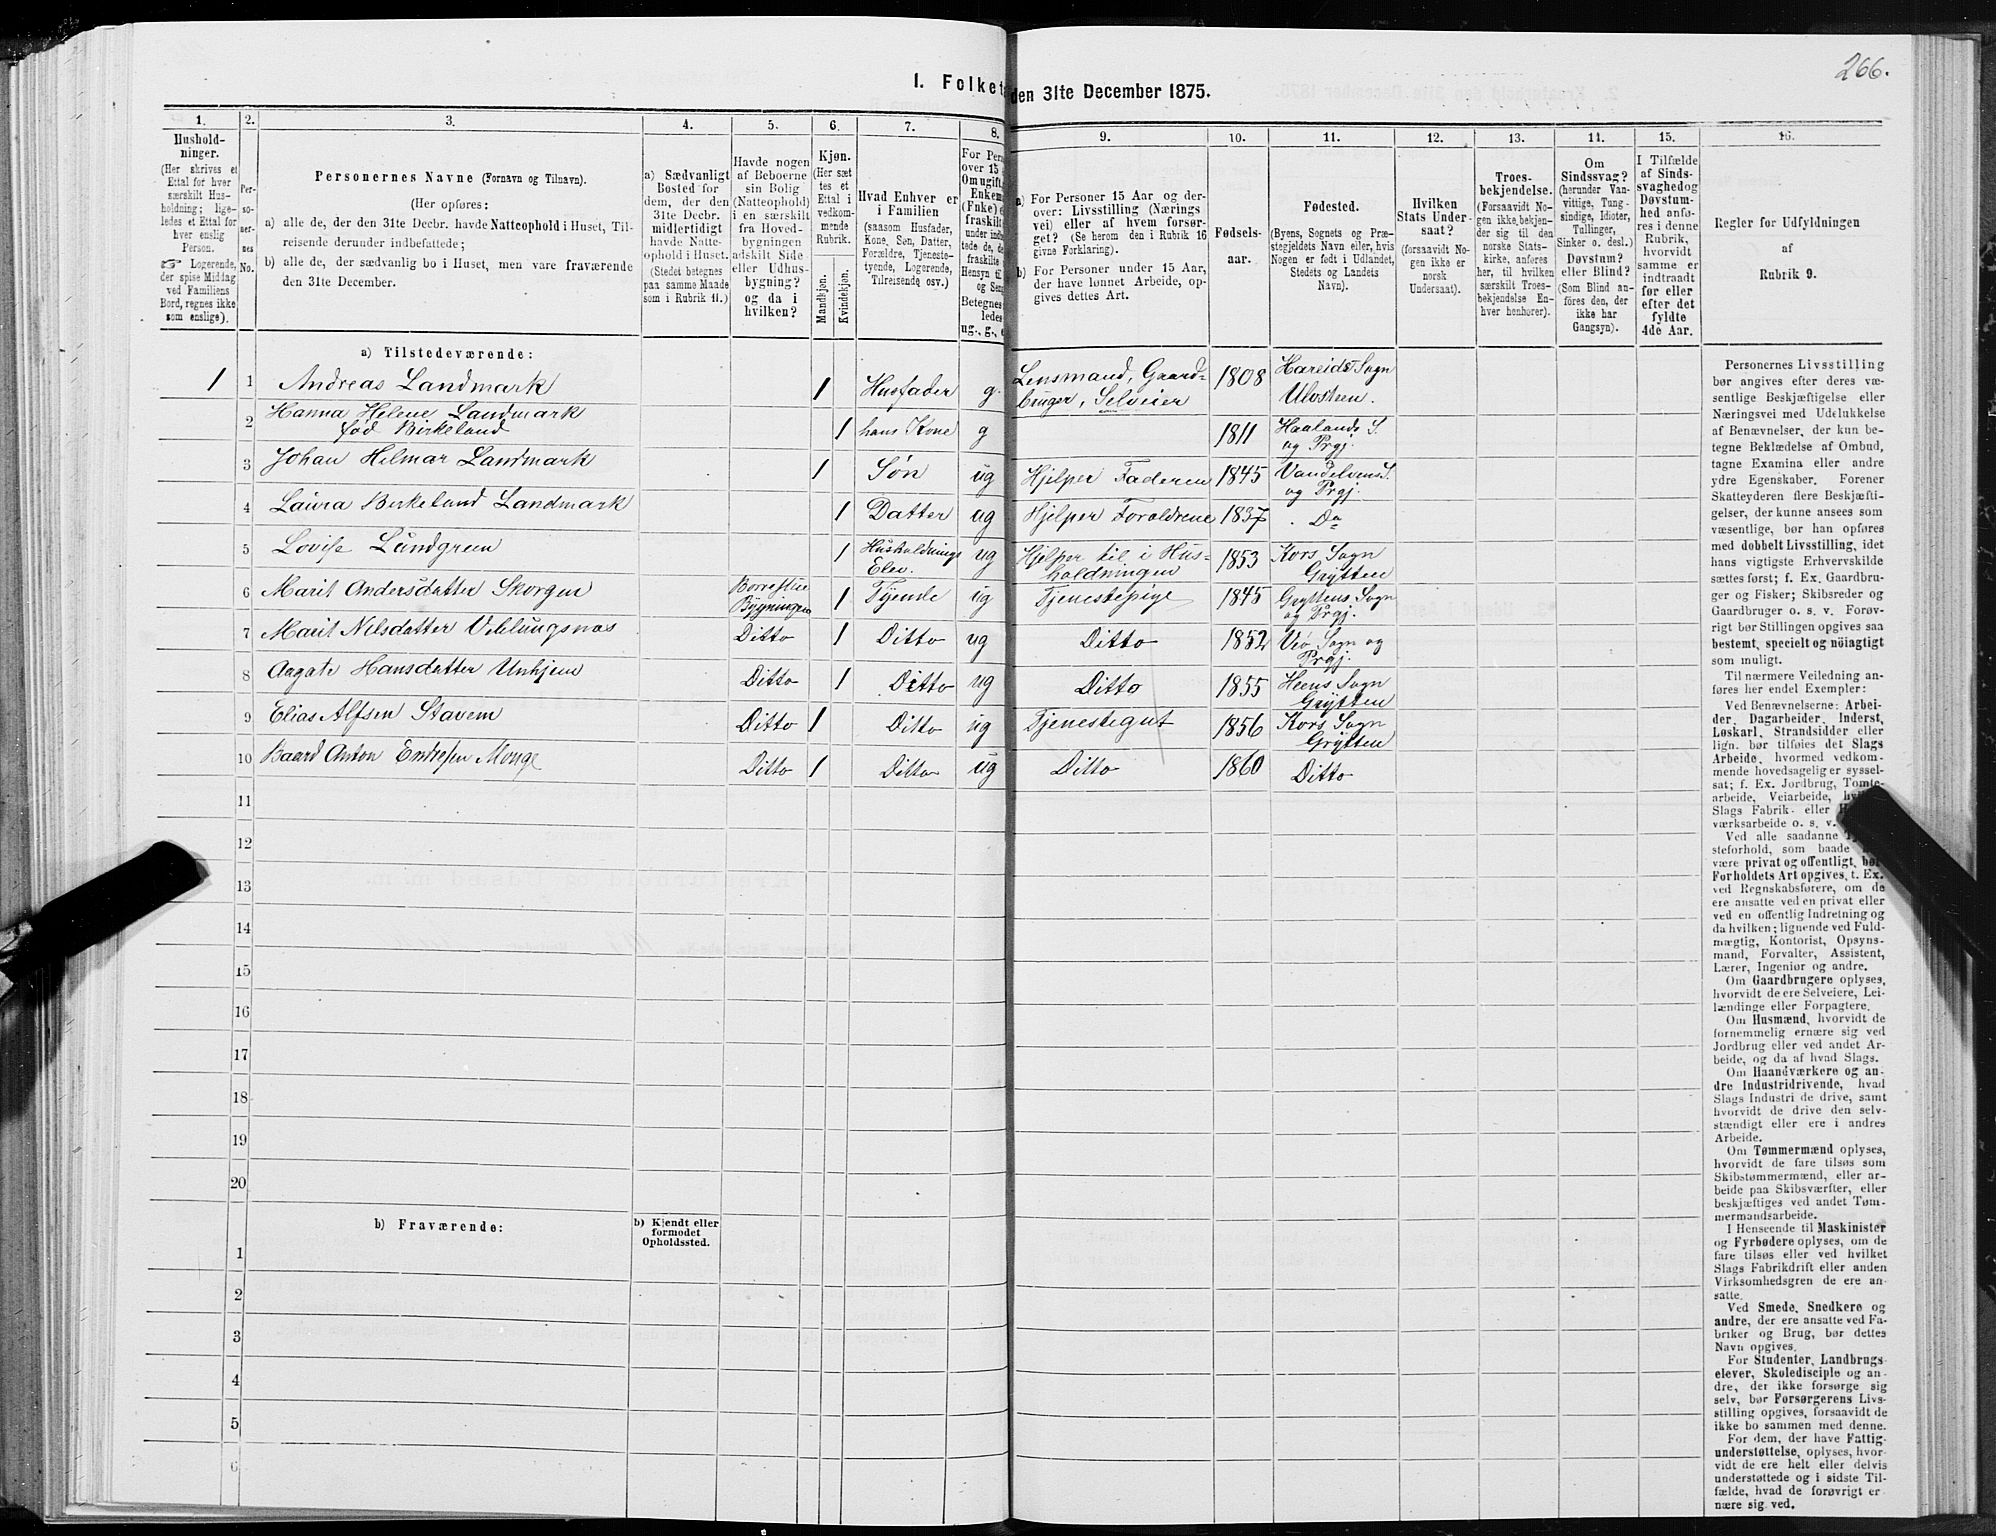 266.
I. Folket
den 31te December 1875.
1. 2. 3. 4. 5. 6. 7. 8. 9. 10. 11. 12. 13. 14. 15. 16.
Hushold-
ninger.
(Her skrives et
Ettal for hver
særskilt Hus-
holdning; lige-
ledes et Ettal for
hver enslig
Person.
☞ Logerende,
der spise Middag
ved Familiens
Bord, regnes ikke
som enslige).
Per-
so-
ner-
nes
No.
Personernes Navne (Fornavn og Tilnavn).
(Her opføres:
a) alle de, der den 31te Decbr. havde Natteophold i Huset, Til-
reisende derunder indbefattede;
b) alle de, der sædvanlig bo i Huset, men vare fraværende
den 31te December.
a) Sædvanligt
Bosted for
dem, der den
31te Decbr.
midlertidigt
havde Natte-
ophold i Huset.
(Stedet betegnes
paa samme Maade
som i Rubrik 11.)
Havde nogen
af Beboerne
sin Bolig
(Natteophold)
i en særskilt
fra Hoved-
bygningen
adskilt Side
eller Udhus-
bygning?
og da i
hvilken?
Kjøn.
(Her sæt
tes et
Ettal i
vedkom-
mende
Rubrik.
Mandkjøn.
Kvindekjøn.
Hvad Enhver er
i Familien
(saasom Husfader,
Kone, Søn, Datter,
Forældre, Tjeneste-
tyende, Logerende,
Tilreisende osv.)
For Pers
over 15
Om ugift,
Enkem
(Enke) e
fraskilt
under indb
tede de, de
fraskilte
Hensyn til
og Sen
Betegnes
ledes
ug., g., e
a) For Personer 15 Aar og der-
over: Livsstilling (Nærings
vei) eller af hvem forsør-
get? (Se herom den i Rubrik 16
givne Forklaring).
b) For Personer under 15 Aar,
der have lønnet Arbeide, op-
gives dettes Art.
Fødsels-
aar.
Fødested.
(Byens, Sognets og Præ-
stegjeldets Navn eller, hvis
Nogen er født i Udlandet,
Stedets og Landets
Navn).
Hvilken
Stats Under-
saat?
(forsaavidt No-
gen ikke er
norsk
Undersaat).
Troes-
bekjendelse.
(Forsaavidt No-
gen ikke bekjen-
der sig til den
norske Stats-
kirke, anføres
her, til hvilken
særskilt Troes-
bekjendelse En-
hver henhører).
Om
Sindssvag?
(herunder Van-
vittige, Tung-
sindige, Idioter,
Tullinger,
Sinker o. desl.)
Døvstum?
eller Blind?
(Som Blind an-
føres den, der
ikke har
Gangsyn).
I Tilfælde
af Sinds-
svaghed og
Døvstum-
hed anfø-
res i denne
Rubrik,
hvorvidt
samme er
indtraadt
før eller
efter det
fyldte
4de Aar.
Regler for Udfyldningen
af
Rubrik 9.
a) Tilstedeværende:
1 1 Andreas Landmark 1 Husfader g. Lensmand, Gaard-
bruger, Selveier 1808 Hareids Sogn
Ulvsteen.
2 Hanna Helene Landmark
fød Birkeland 1 hans Kone g 1811 Haalands S.
og Prgj.
3 Johan Hilmar Landmark 1 Søn ug Hjelper Faderen 1845 Vandelvens S.
og Prgj.
4 Laura Birkeland Landmark 1 Datter ug Hjelper Foreldrene 1837 Do
5 Lovise Lundgreen 1 Husholdnings
Elev. ug Hjelper til i Hus-
holdningen 1853 Kors Sogn
Grytten
6 Marit Andersdatter Skorgen Borrestue
Bygningen 1 Tyende ug Tjenestepige 1845 Gryttens Sogn
og Prgj.
7 Marit Nilsdatter Veblungsnæs Ditto 1 Ditto ug Ditto 1852 Veø Sogn og
Prgj.
8 Aagate Hansdatter Unhjem Ditto 1 Ditto ug Ditto 1855 Heens Sogn
Grytten
9 Elias Alfsen Stavem Ditto 1 Ditto ug Tjenestegut 1856 Kors Sogn
Grytten
10 Baard Anton Endresen Monge Ditto 1 Ditto ug Ditto 1860 Ditto
11
12
13
14
15
16
17
18
19
20
b) Fraværende:
b) Kjendt eller
formodet
Opholdssted.
1
2
3
4
5
6
Personernes Livsstilling
bør angives efter deres væ-
sentlige Beskjæftigelse eller
Næringsvei med Udelukkelse
af Benævnelser, der kun be-
tegne Beklædelse af Ombud,
tagne Examina eller andre
ydre Egenskaber. Forener
Skatteyderen flere Beskjæfti-
gelser, der kunne ansees som
væsentlige, bør han opføres
med dobbelt Livsstilling, idet
hans vigtigste Erhvervskilde
sættes først; f. Ex. Gaardbru-
ger og Fisker; Skibsreder og
Gaardbruger o. s. v. Forøv-
rigt bør Stillingen opgives saa
bestemt, specielt og nøiagtigt
som muligt.
Til nærmere Veiledning an-
føres her endel Exempler:
Ved Benævnelserne: Arbei-
der, Dagarbeider, Inderst,
Løskarl, Strandsidder eller
lign. bør tilføies det Slags
Arbeide, hvormed vedkom-
mende hovedsagelig er syssel-
sat; f. Ex. Jordbrug, Tomte-
arbeide, Veiarbeide,
Slags Fabrik- eller
værksarbeide o. s. v.
Ved alle saadanne
steforhold, som baade
være privat og offentligt, bør
Forholdets Art opgives, t. Ex.
ved Regnskabsførere, om de
ere ansatte ved en privat eller
ved en offentlig Indretning og
da hvilken; lignende ved Fuld-
mægtig, Kontorist, Opsyns-
mand, Forvalter, Assistent,
Lærer, Ingeniør og andre.
Om Gaardbrugere oplyses,
hvorvidt de ere Selveiere, Lei-
lændinge eller Forpagtere.
Om Husmænd, hvorvidt de
fornemmelig ernære sig ved
Jordbrug eller ved andet Ar-
beide, og da af hvad Slags.
Om Haandværkere og an-
dre Industridrivende, hvad
Slags Industri de drive, samt
hvorvidt de drive den selv-
stændigt eller ere i andres
Arbeide.
Om Tømmermænd oplyses,
hvorvidt de fare tilsøs som
Skibstømmermænd, eller ar-
beide paa Skibsværfter, eller
beskjæftiges ved andet Tøm-
mermandsarbeide.
I Henseende til Maskinister
og Fyrbødere oplyses, om de
fare tilsøs eller ved hvilket
Slags Fabrikdrift eller anden
Virksomhedsgren de ere an-
satte.
Ved Smede, Snedkere og
andre, der ere ansatte ved Fa-
briker og Brug, bør dettes
Navn opgives.
For Studenter, Landbrugs
elever, Skoledisciple og an-
dre, der ikke forsørge sig
selv, bør Forsørgerens Livs-
stilling opgives, forsaavidt de
ikke bo sammen med denne.
For dem, der have Fattig-
understøttelse, oplyses, hvor-
vidt de ere helt eller delvis
understøttede og i sidste Til-
fælde, hvad de forøvrigt er
nære sig ved.